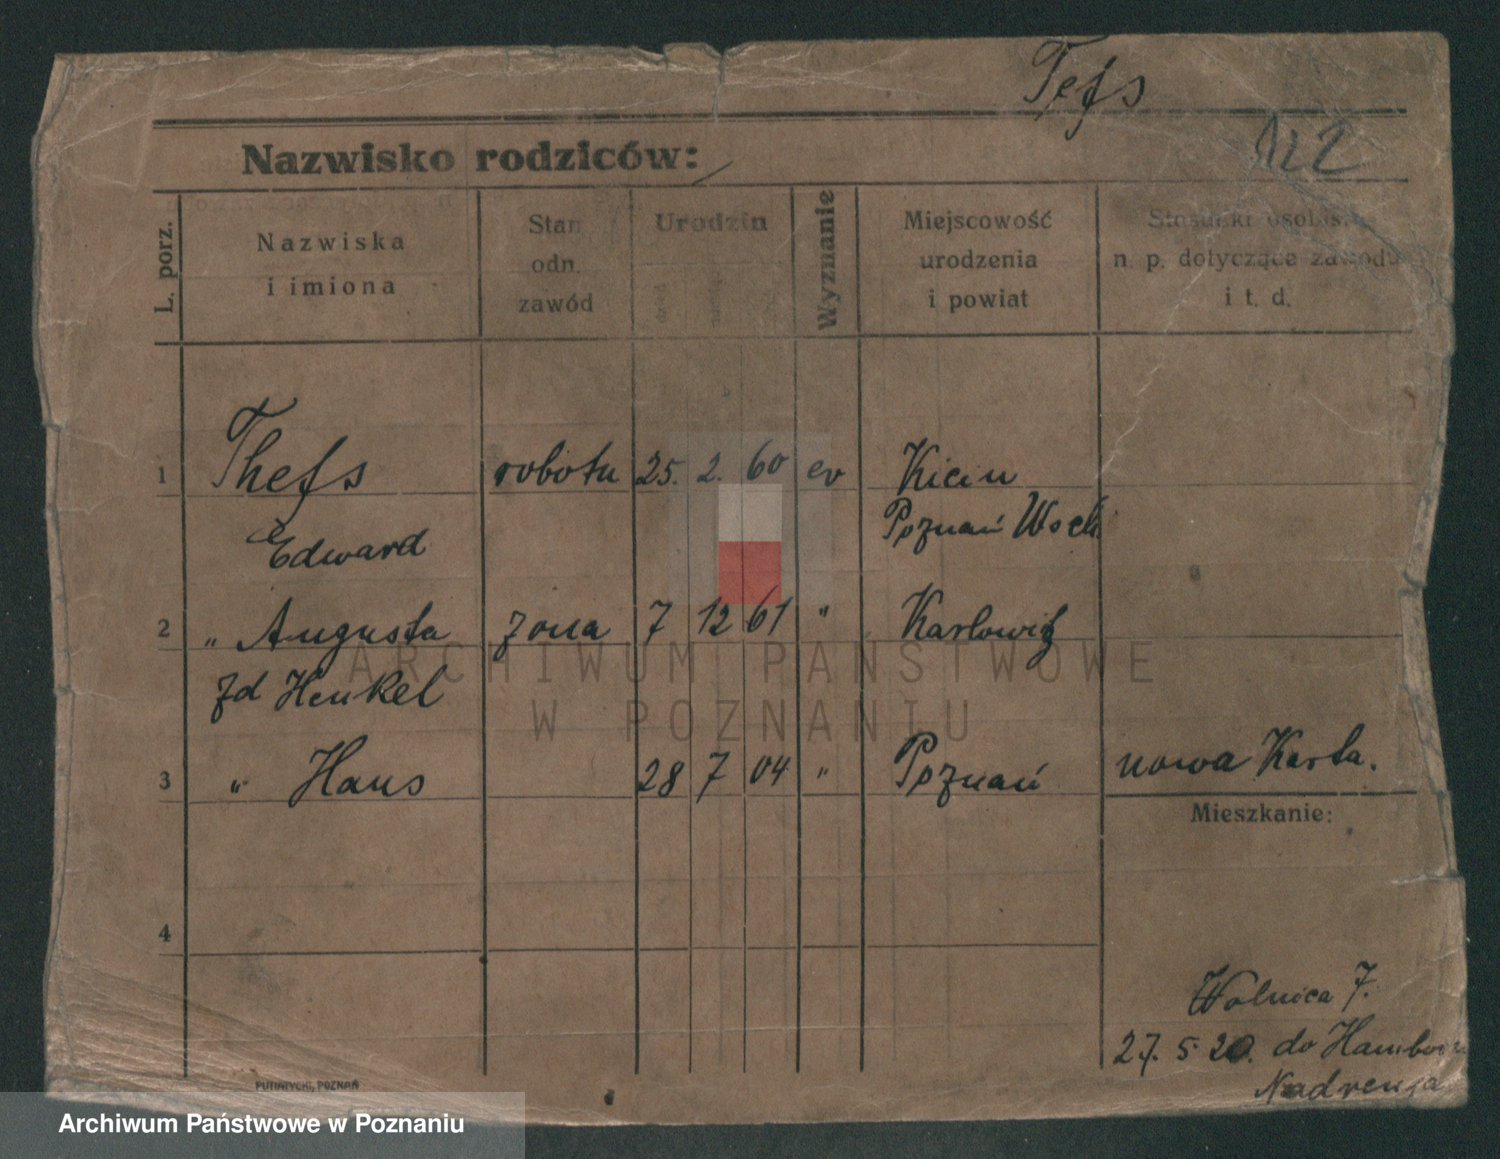 Tefs
Nazwisko rodziców:
L. porz.
Nazwiska
i imiona
Stan
odn.
zawód
Urodzin
Wyznanie
Miejscowość
urodzenia
i powiat
Stosunki osobis.
n. p. dotyczące zawodu
i t. d.
1 Thefs robotn 25. 2. 60 ev Kicin
Edward Poznań Wsch
2 " Augusta żona 7 12 61 " Karlowitz
zd Henkel
3 " Hans 28 7 04 " Poznań nowa Karta.
Mieszkanie:
4
Wolnica 7.
27. 5. 20. do Hamborn
Nadrenja
PUTIATYCKI, POZNAŃ
ARCHIWUM PAŃSTWOWE
W POZNANIU
Archiwum Państwowe w Poznaniu